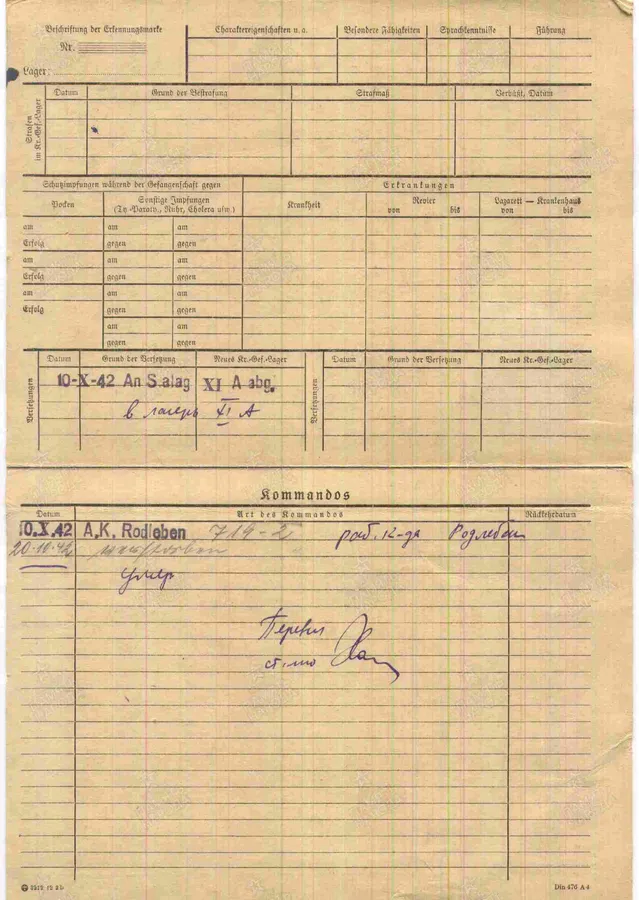 Beschriftung der Erkennungsmarke
Nr.
Lager:
Charaktereigenschaften u. a.
Besondere Fähigkeiten
Sprachkenntnisse
Führung
Strafen im Kr.-Gef.-Lager
Datum
Grund der Bestrafung
Strafmaß
Verbüßt, Datum
Schutzimpfungen während der Gefangenschaft gegen
Erkrankungen
Pocken
Sonstige Impfungen
(Ty.-Paraty., Ruhr, Cholera usw.)
Krankheit
Revier
von bis
Lazarett — Krankenhaus
von bis
am am am
Erfolg gegen gegen
am am am
Erfolg gegen gegen
am am am
Erfolg gegen gegen
am am
gegen gegen
Versetzungen
Datum Grund der Versetzung Neues Kr.-Gef.-Lager
10-X-42 An S alag XI A abg.
в лагерь XI A
Versetzungen
Datum Grund der Versetzung Neues Kr.-Gef.-Lager
Kommandos
Datum Art des Kommandos Rückkehrdatum
10.X.42 A.K. Rodleben 719-2 раб. к-да Родлебен
20.10.42 verstorben
умер
Перевел
Din 476 A 4